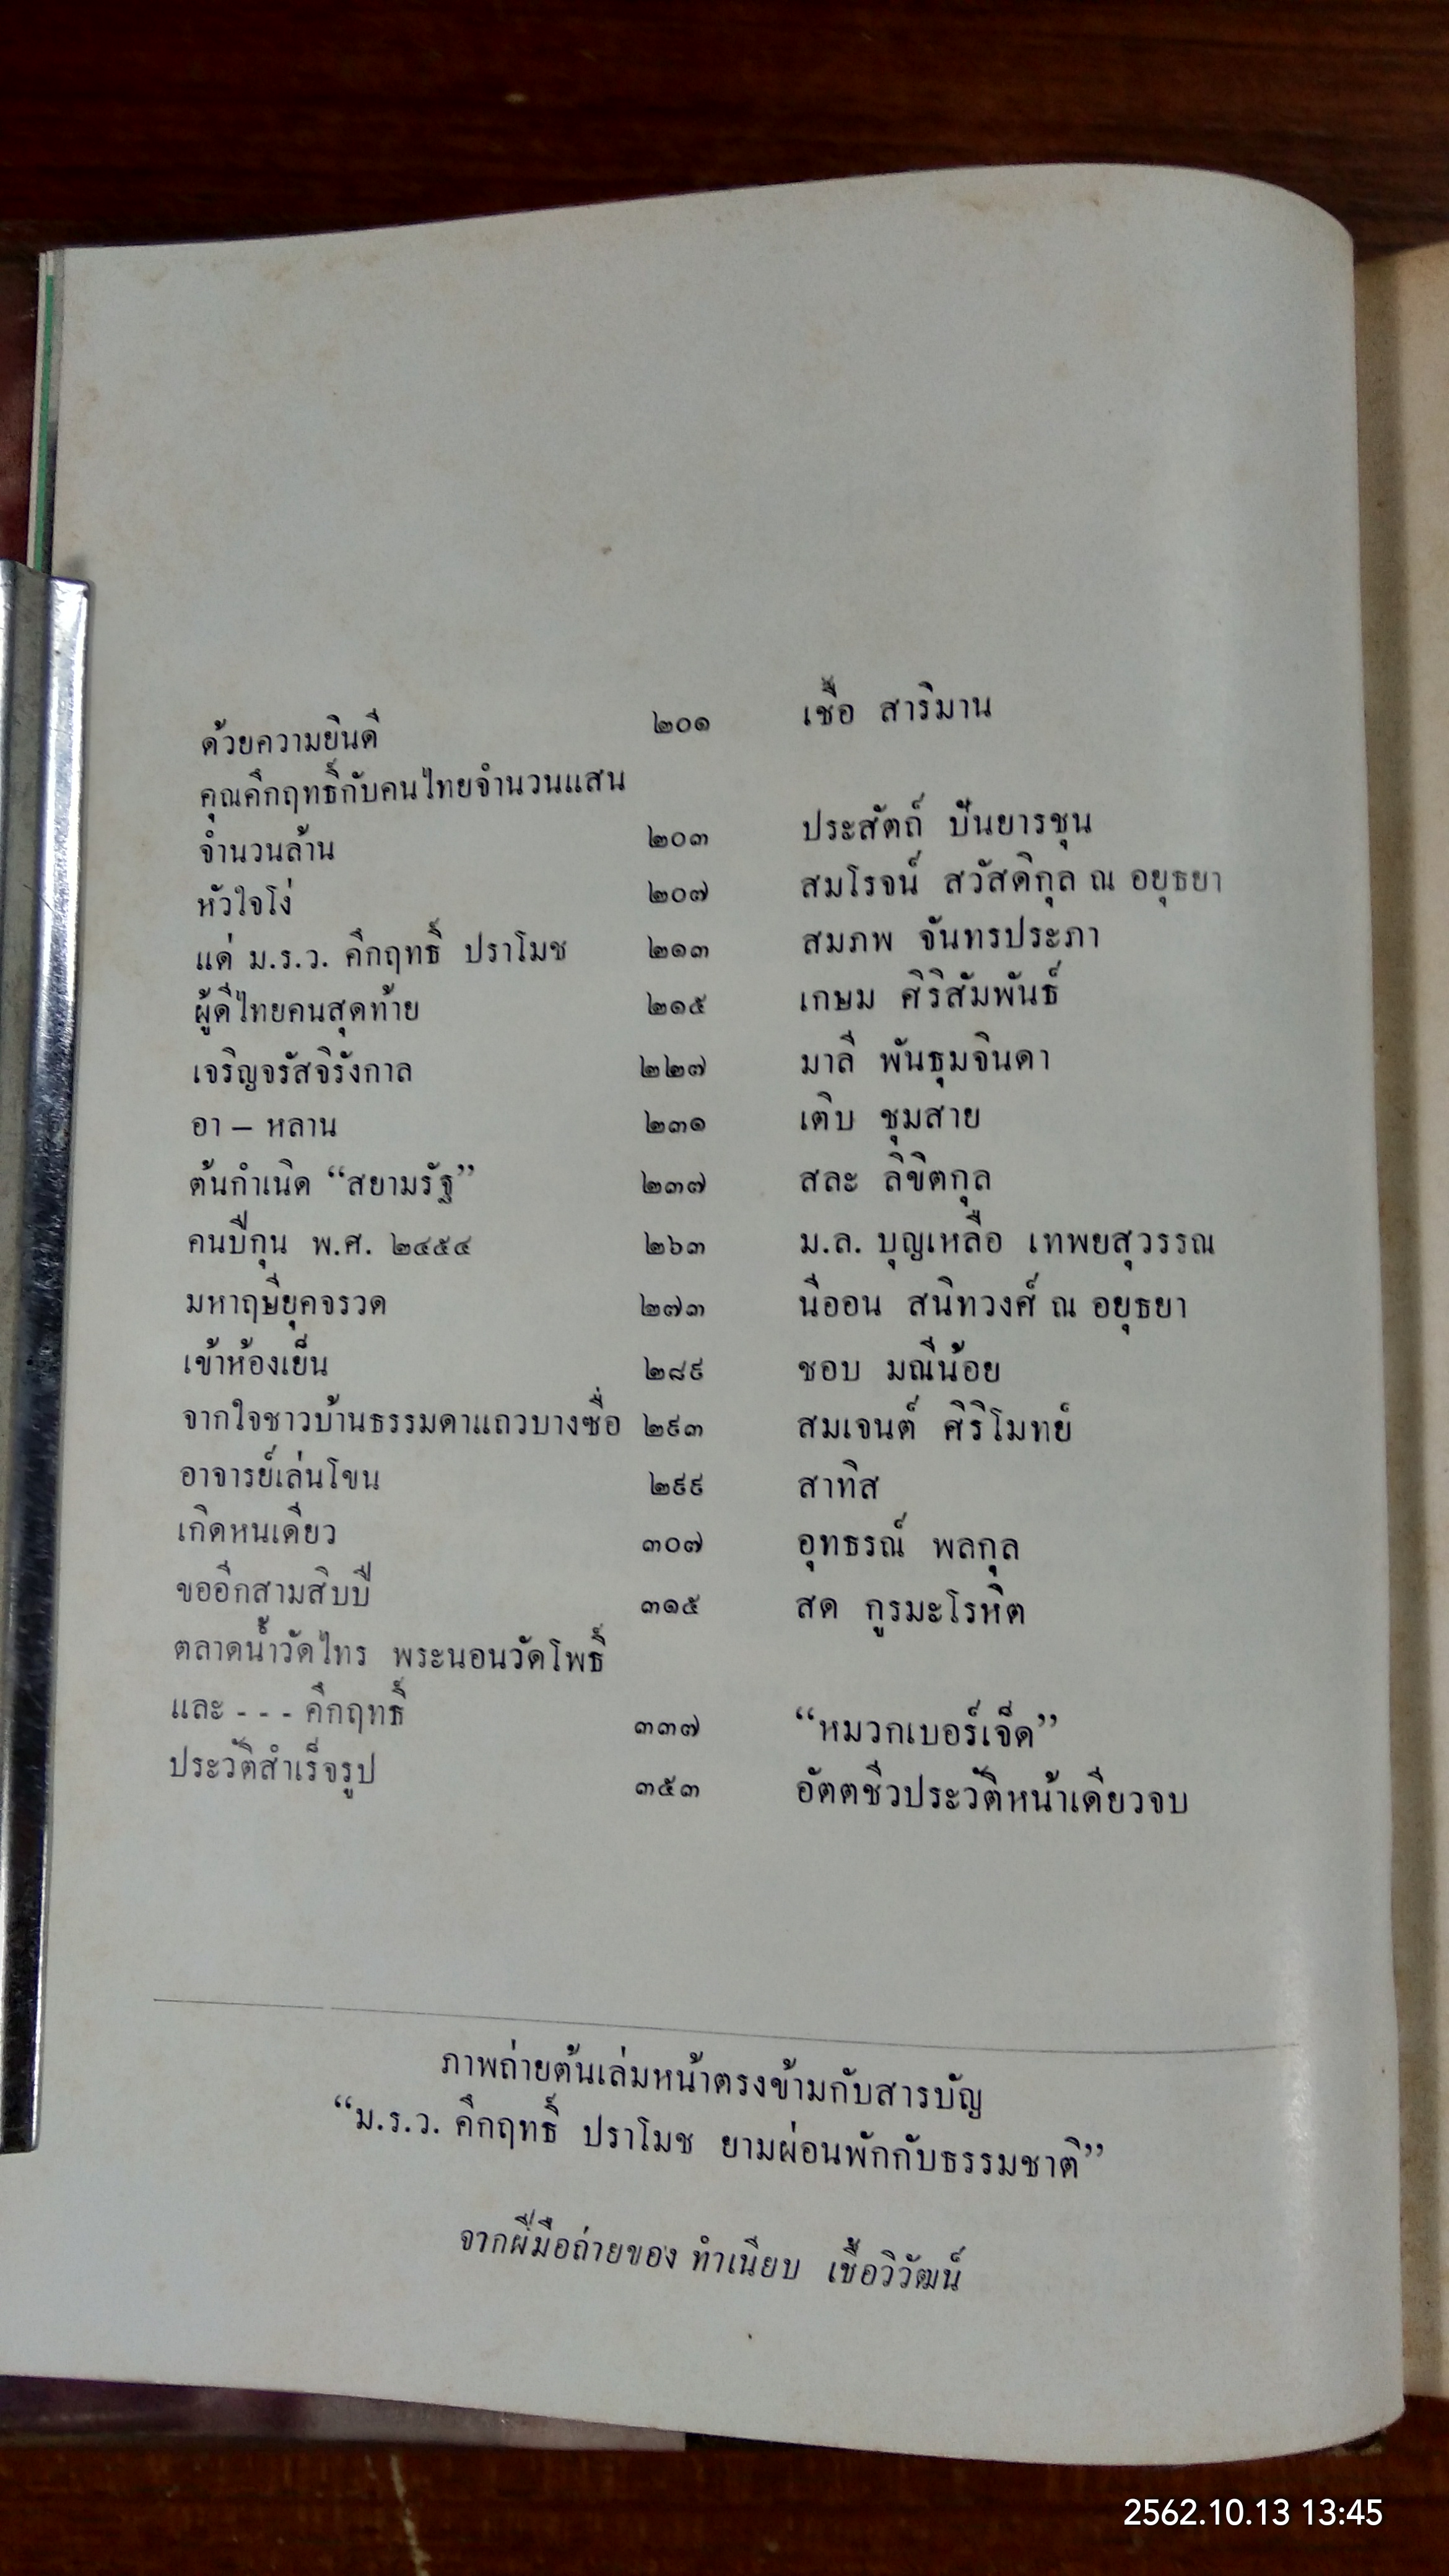 ด้วยความยินดี ๒๐๑ เชื้อ สาริมาน
คุณคึกฤทธิ์กับคนไทยจำนวนแสน
จำนวนล้าน ๒๐๓ ประสัตถ์ ปันยารชุน
หัวใจโง่ ๒๐๗ สมโรจน์ สวัสดิกุล ณ อยุธยา
แด่ ม.ร.ว. คึกฤทธิ์ ปราโมช ๒๑๓ สมภพ จันทรประภา
ผู้ดีไทยคนสุดท้าย ๒๑๕ เกษม ศิริสัมพันธ์
เจริญจรัสจิรังกาล ๒๒๗ มาลี พันธุมจินดา
อา – หลาน ๒๓๑ เติบ ชุมสาย
ต้นกำเนิด “สยามรัฐ” ๒๓๗ สละ ลิขิตกุล
คนปีกุน พ.ศ. ๒๔๕๔ ๒๖๓ ม.ล. บุญเหลือ เทพยสุวรรณ
มหาฤษียุคจรวด ๒๗๓ นีออน สนิทวงศ์ ณ อยุธยา
เข้าห้องเย็น ๒๘๙ ชอบ มณีน้อย
จากใจชาวบ้านธรรมดาแถวบางซื่อ ๒๙๓ สมเจนต์ ศิริโมทย์
อาจารย์เล่นโขน ๒๙๙ สาทิส
เกิดหนเดียว ๓๐๗ อุทธรณ์ พลกุล
ขออีกสามสิบปี ๓๑๕ สด กูรมะโรหิต
ตลาดน้ำวัดไทร พระนอนวัดโพธิ์
และ - - - คึกฤทธิ์ ๓๓๗ “หมวกเบอร์เจ็ด”
ประวัติสำเร็จรูป ๓๕๓ อัตตชีวประวัติหน้าเดียวจบ
ภาพถ่ายต้นเล่มหน้าตรงข้ามกับสารบัญ
“ม.ร.ว. คึกฤทธิ์ ปราโมช ยามผ่อนพักกับธรรมชาติ”
จากฝีมือถ่ายของ ทำเนียบ เชื้อวิวัฒน์
2562.10.13 13:45